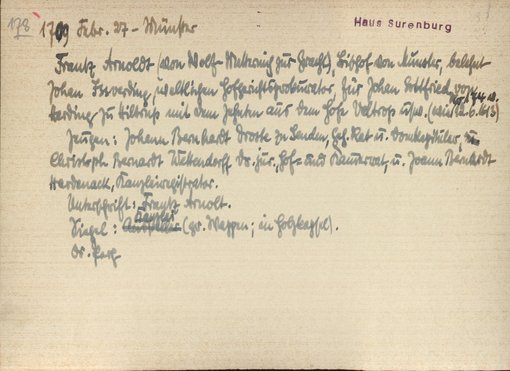 178
1709 Febr. 27 - Münster
Haus Surenburg
Frantz Arnoldt (von Wolf-Metternich zur Gracht), Bischof von Münster, belehnt
Johan Isverding, weltlichen Hofgerichtsprokurator, für Johan Gottfried von
Harding zu Hiltrup mit dem Zehnten aus dem Hofe Veltrop usw. (wie 12.6.1613)
Zeugen: Johann Bernhardt Droste zu Senden, Geh. Rat u. Domkapitular, u.
Christoph Bernardt Wittendorff Dr. jur., Hof- und Kammerrat, u. Joann Bernhardt
Hardenack, Kanzleiregistrator.
Unterschrift: Frantz Arnolt.
Kanzlei
Siegel: (gr. Wappen; in Holzkapsel).
Or. Perg